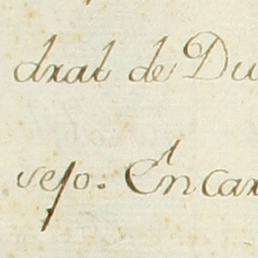 drat de Du
sejo. Encar